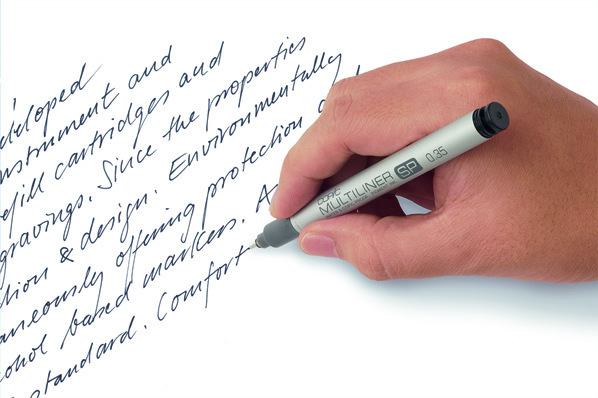 developed
instrument and
refill cartridges and
gravings. Since the properties
tion & design. Environmentally
aneously offering protection a
cohol based markers. A
standard. Comfort
COPIC
MULTILINER SP 0.35